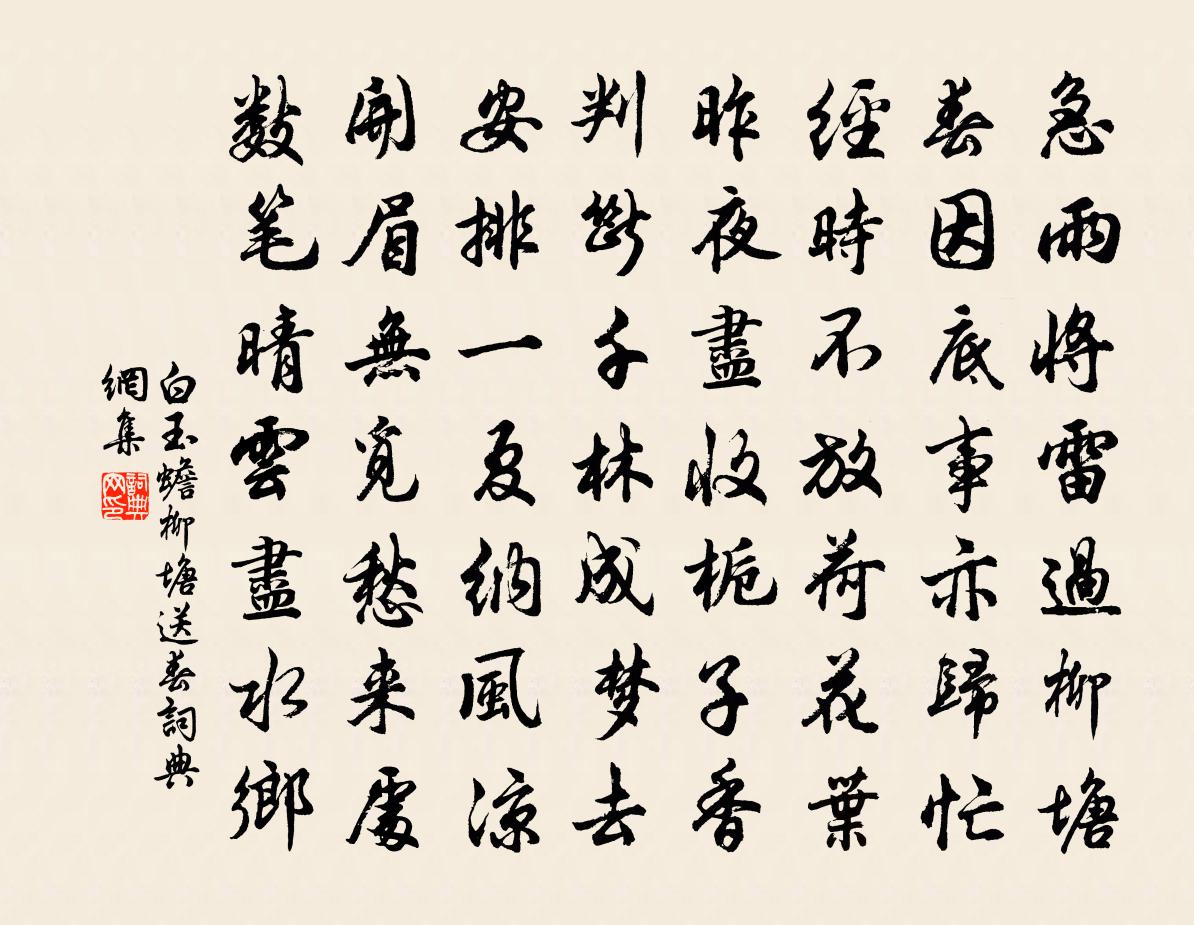 急雨將雷過柳塘
春因底事亦歸忙
經時不放荷花葉
昨夜盡收栀子香
判斷千林成梦去
安排一夏納風凉
開眉無覓愁来處
数笔晴雲盡水鄉
白玉蟾柳塘送春詞典
網集
詞典网印